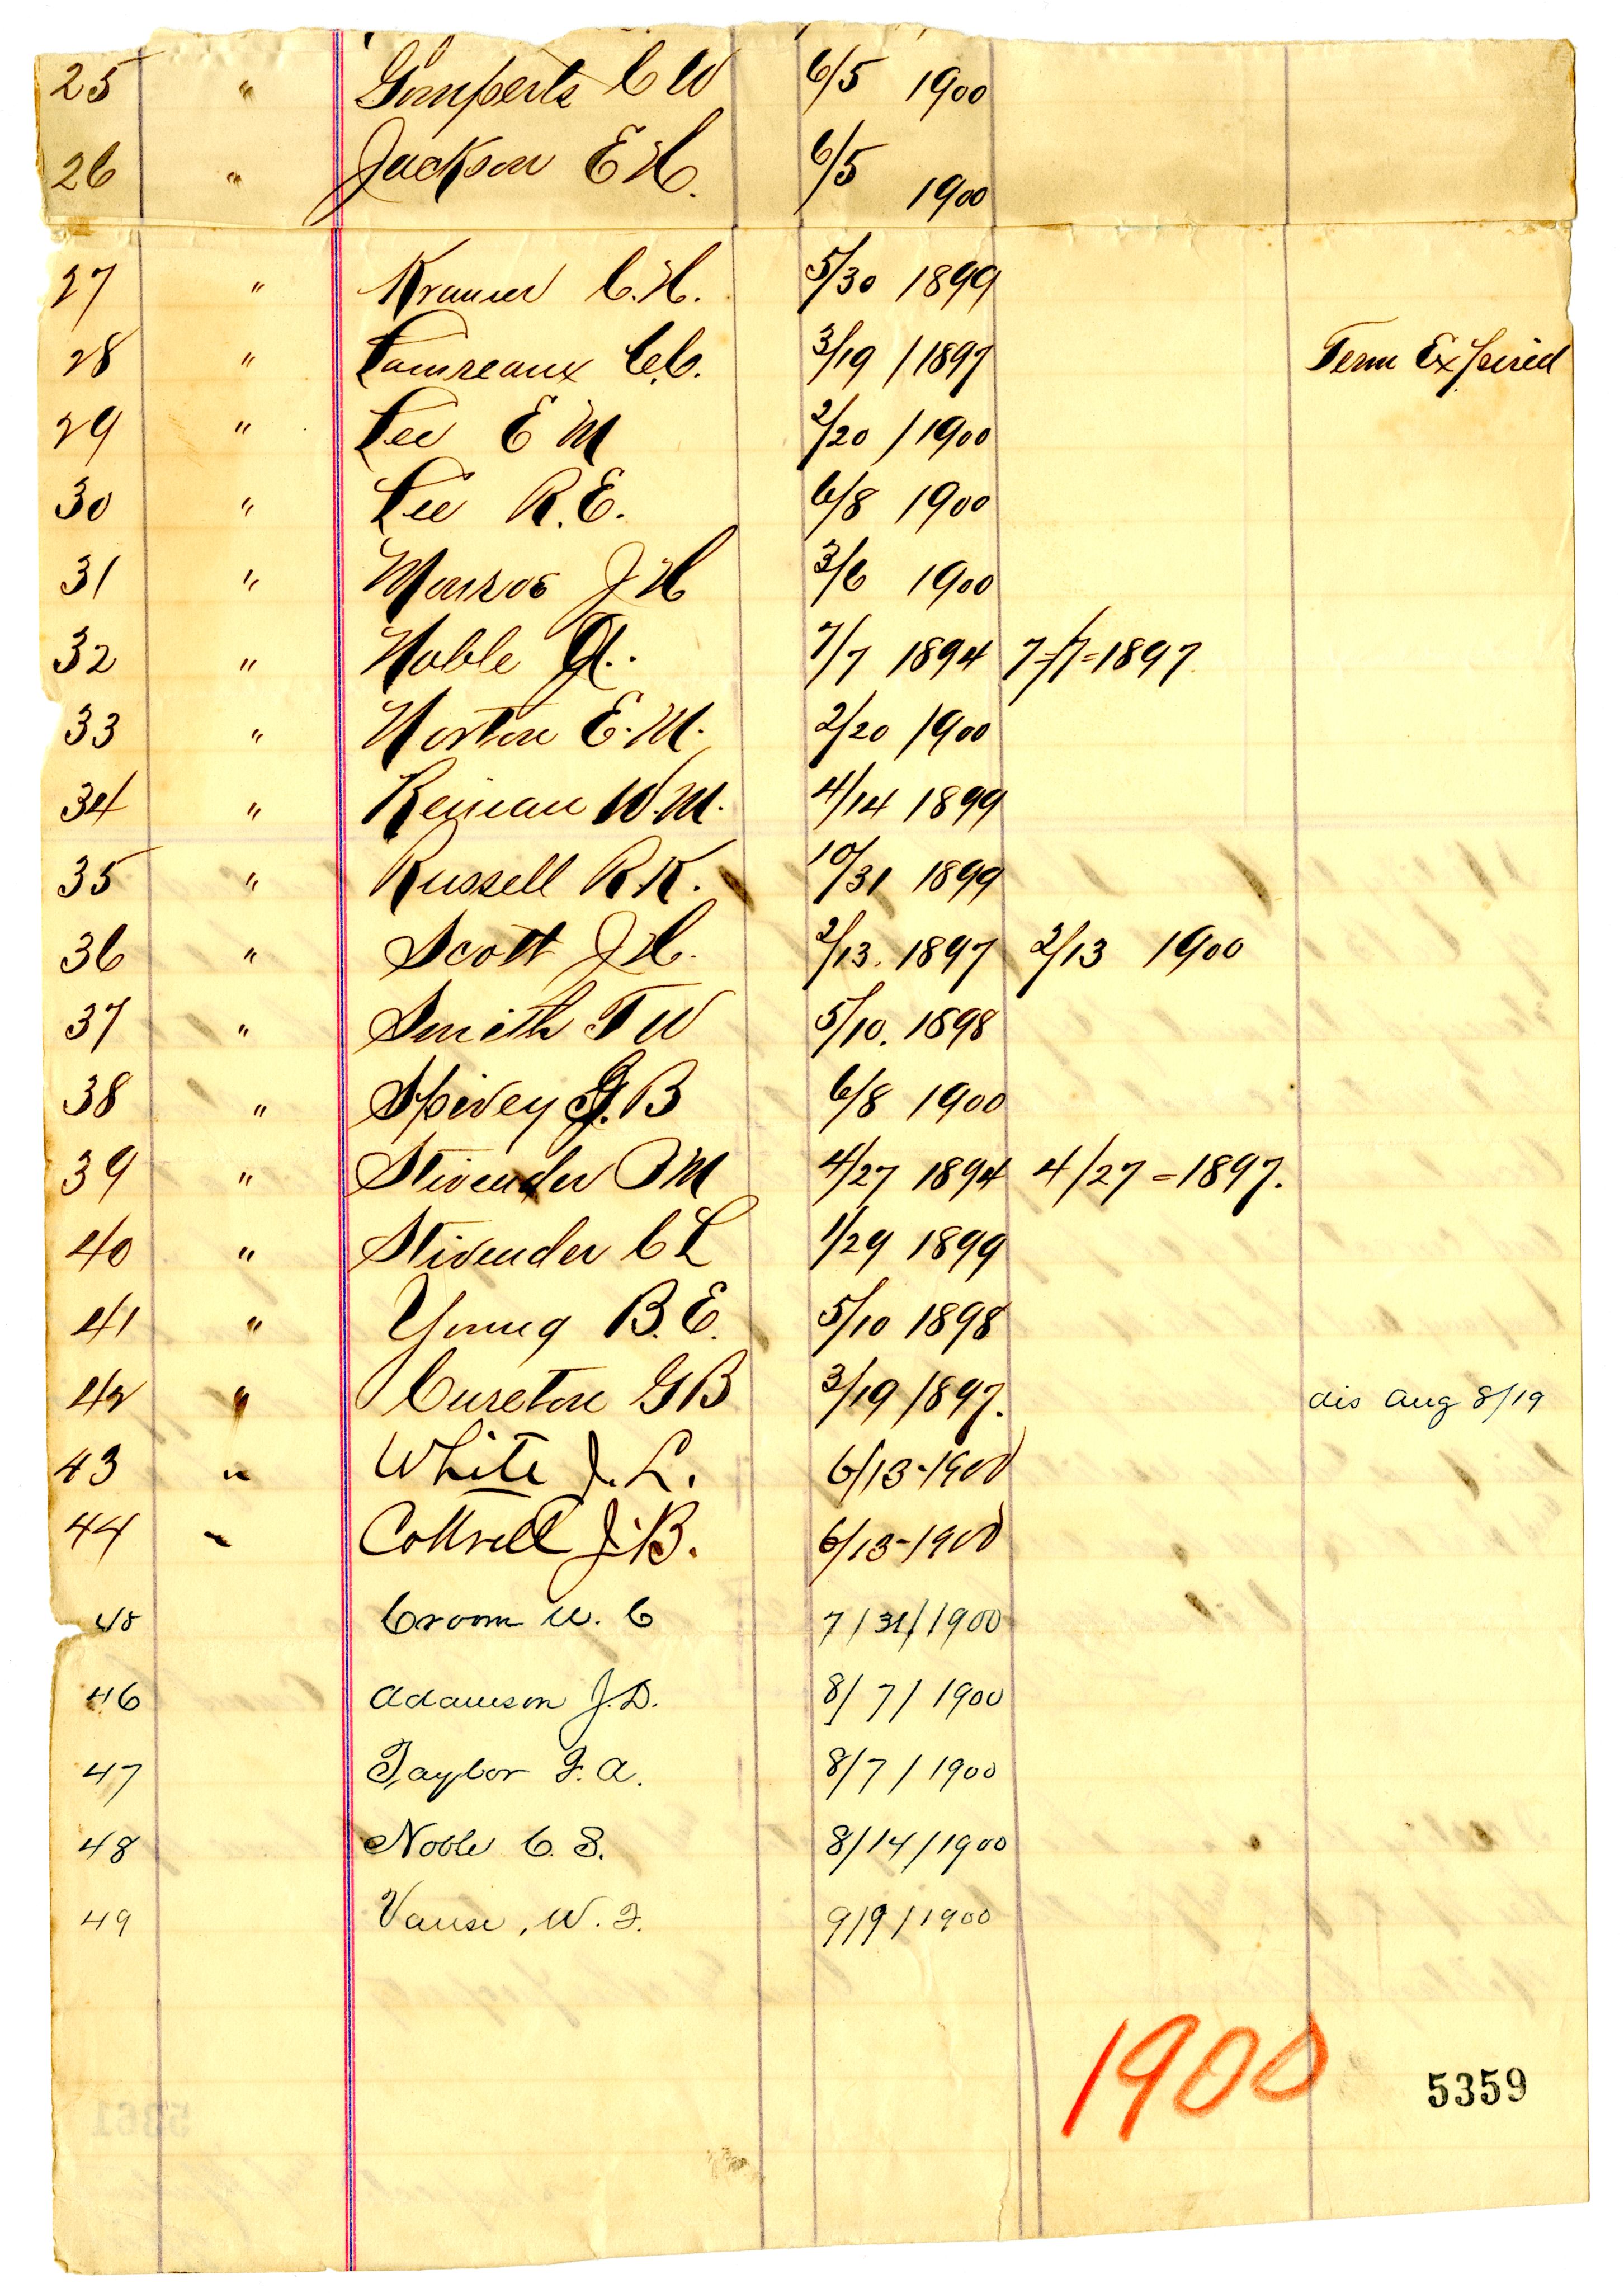 25 " Gomperts C W 6/5 1900
26 " Jackson E H. 6/5 1900
27 " Kramer C. H. 5/30 1899
28 " Lamreaux C.C. 3/19 / 1897 Term Expired
29 " Lee E M 2/20 / 1900
30 " Lee R. E. 6/8 1900
31 " Monroe J H 3/6 1900
32 " Noble A. 7/7 1894 7=7=1897
33 " Norton E. M. 2/20 1900
34 " Reman W. M. 4/14 1899
35 " Russell R. K. 10/31 1899
36 " Scott J H. 2/13. 1897 2/13 1900
37 " Smith T W 5/10. 1898
38 " Spivey G. B 6/8 1900
39 " Stivender O M 4/27 1894 4/27 = 1897.
40 " Stivender C L 1/29 1899
41 " Young B. E. 5/10 1898
42 " Cureton G B 3/19 1897. dis Aug 8/19
43 " White J. L. 6/13-1900
44 " Cottrell J. B. 6/13-1900
45 Croom W. C 7/31/1900
46 Adamson J. D. 8/7/1900
47 Taylor F. A. 8/7/1900
48 Noble C. S. 8/14/1900
49 Vause, W. F. 9/9/1900
1900
5359